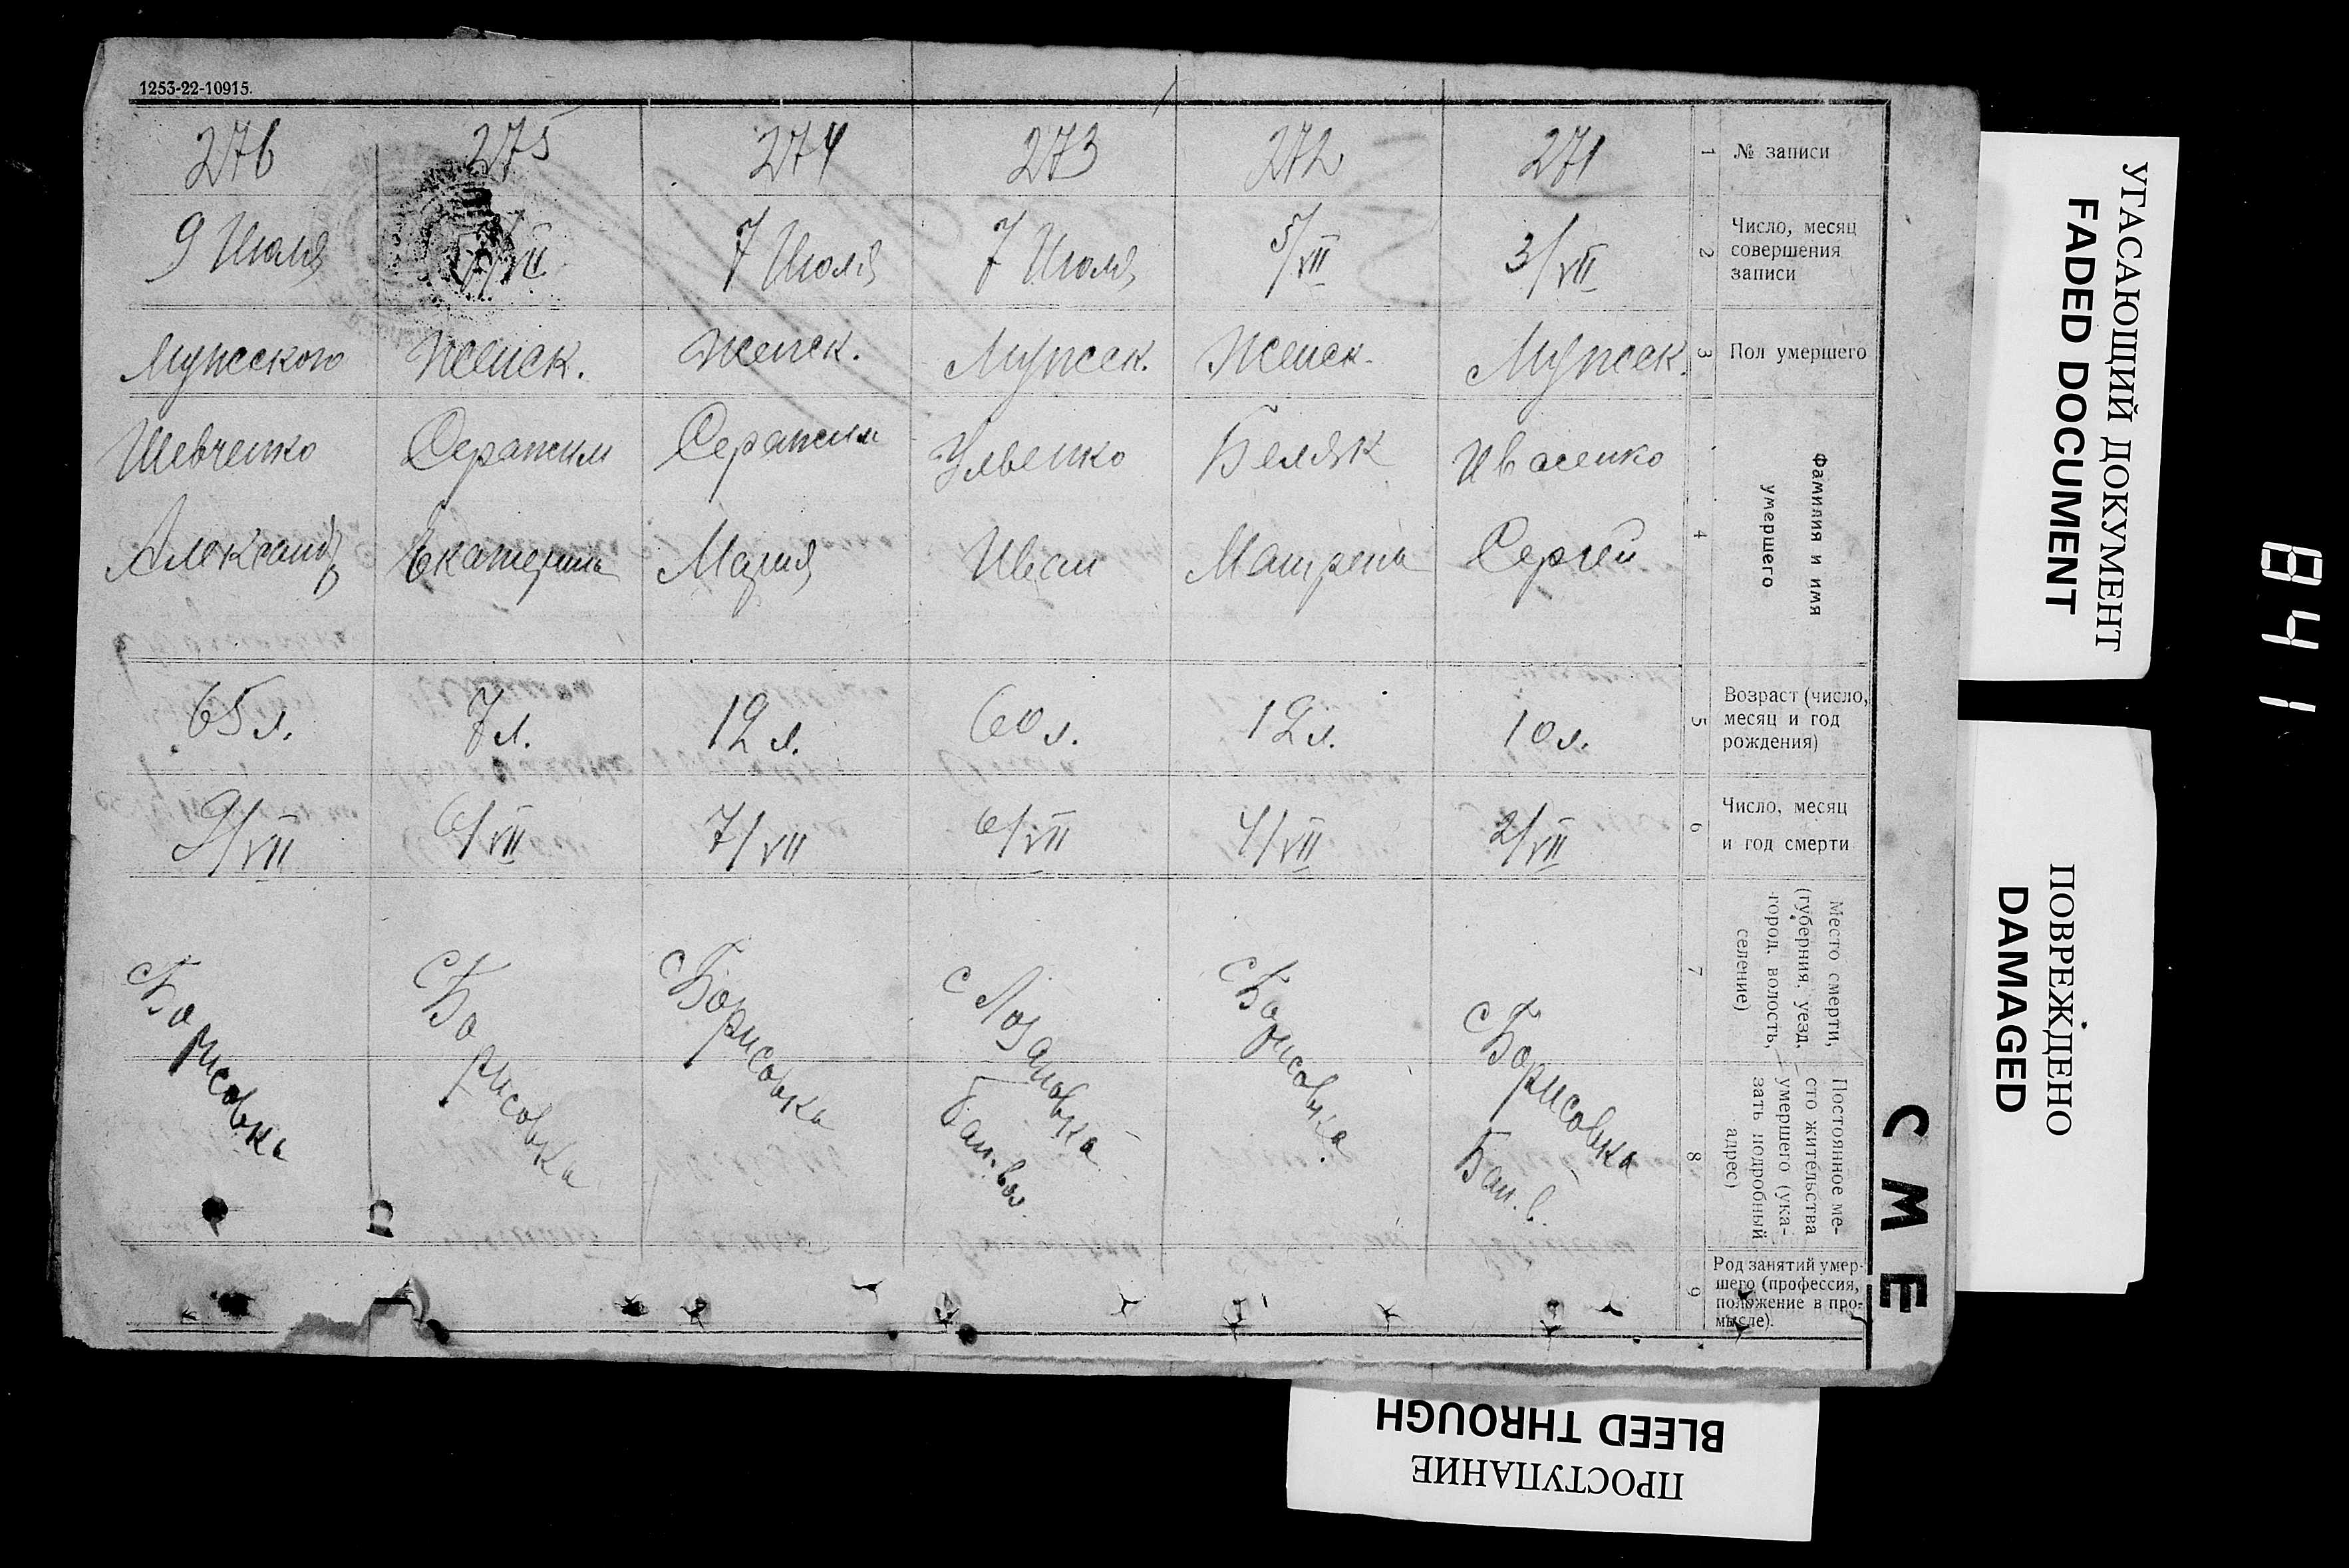 1253-22-10915.
276 275 274 273 272 271 1 № записи
9 Июля 7/VII 7 Июля 7 Июля 5/VII 3/VII 2 Число, месяц
совершения
записи
Мужского Женск. Женск. Мужск. Женск. Мужск. 3 Пол умершего
Шевченко Серажим Серажим Ульенко Беляк Ивасенко
Александр Екатерина Мария Иван Матрена Сергей
4 Фамилия и имя
умершего
65 л. 7 л. 12 л. 60 л. 12 л. 10 л. 5 Возраст (число,
месяц и год
рождения)
9/VII 6/VII 7/VII 6/VII 4/VII 2/VII 6 Число, месяц
и год смерти
с Борисовка
с Борисовка
с Борисовка
с Лозановка
Бал. вол.
с Борисовка
с Борисовка
Бал. в.
7 Место смерти,
(губерния, уезд,
город, волость,
селение)
8 Постоянное ме-
сто жительства
умершего (ука-
зать подробный
адрес)
9 Род занятий умер-
шего (профессия,
положение в про-
мысле).
СМЕ
УГАСАЮЩИЙ ДОКУМЕНТ
FADED DOCUMENT
ПОВРЕЖДЕНО
DAMAGED
ПРОСТУПАНИЕ
BLEED THROUGH
841